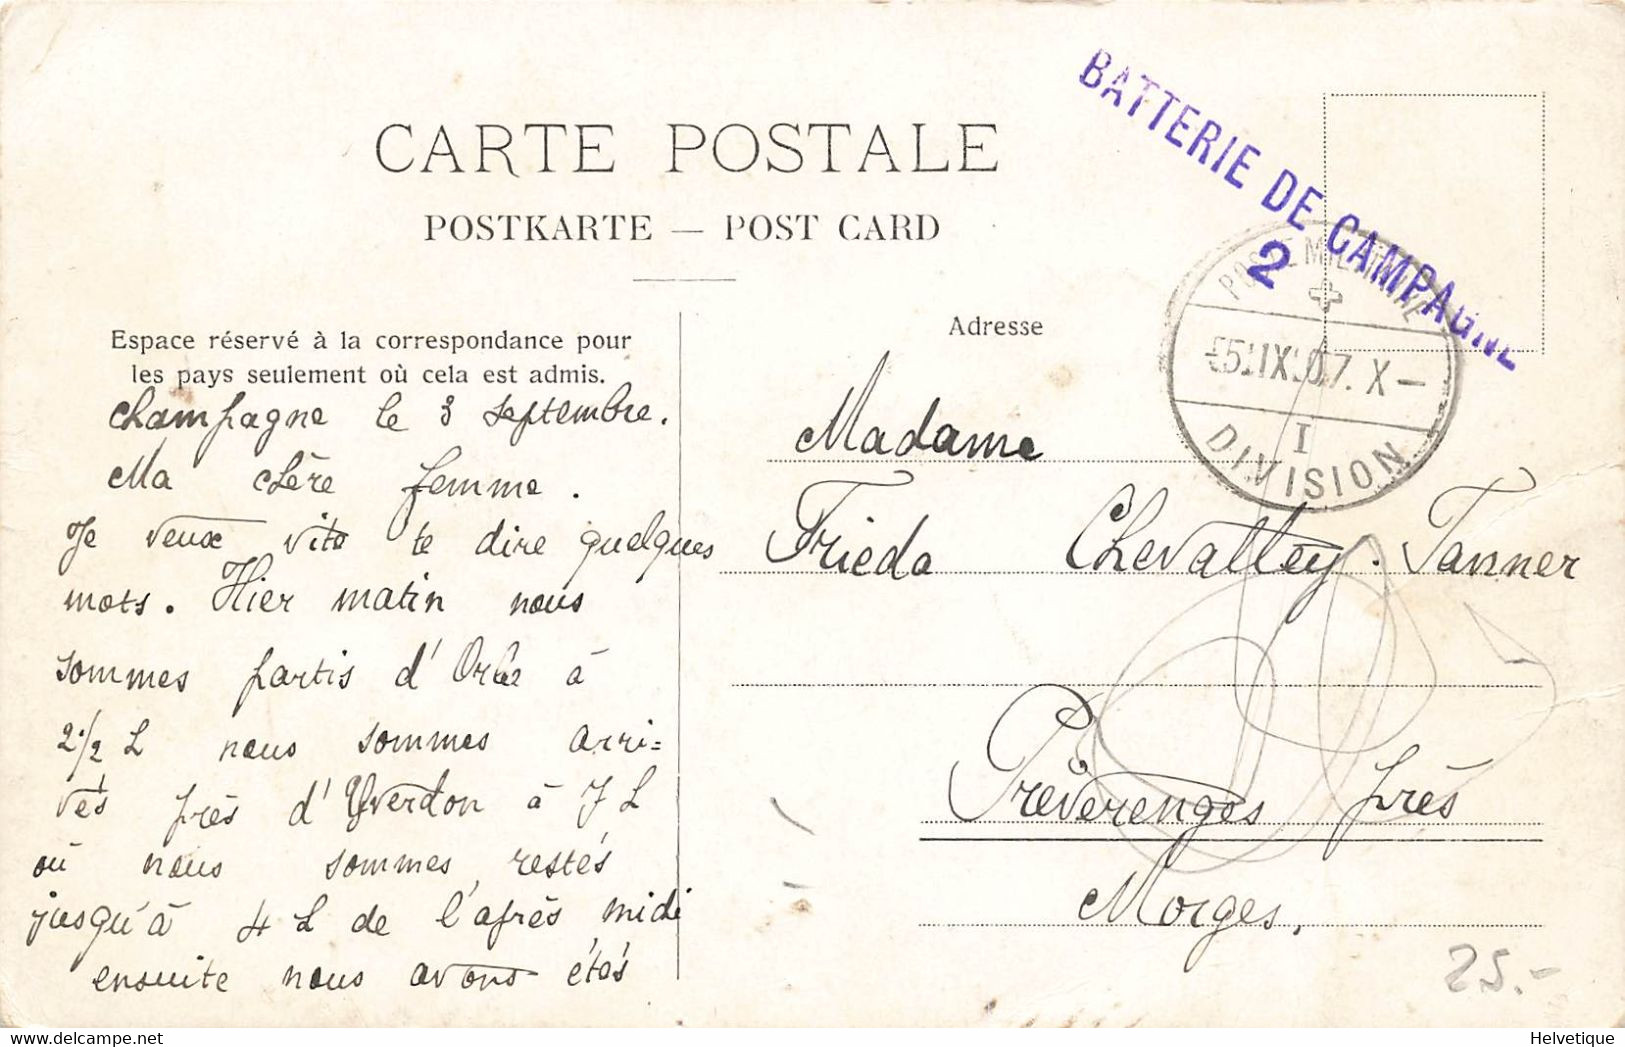 CARTE POSTALE
POSTKARTE — POST CARD
BATTERIE DE CAMPAGNE
2
POSTE MILITAIRE
5.IX.07. X-
I
DIVISION
Espace réservé à la correspondance pour
les pays seulement où cela est admis.
Champagne le 3 septembre.
Ma chère femme.
Je veux vite te dire quelques
mots. Hier matin nous
sommes partis d'Orbe à
2 1/2 h nous sommes arri=
vés près d'Yverdon à 7 h
où nous sommes restés
jusqu'à 4 h de l'après midi
ensuite nous avons étés
Adresse
Madame
Frieda Chevalley-Tanner
Préverenges près
Morges.
25.-
Helvetique
delcampe.net